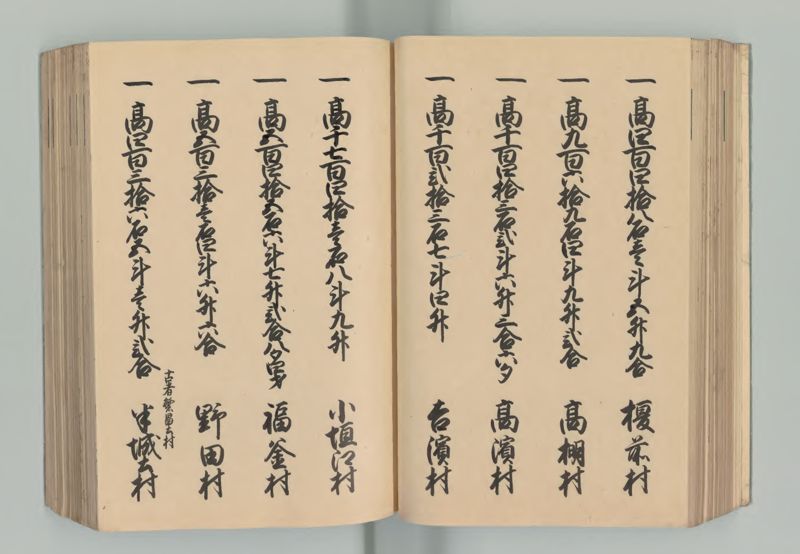 一 高四百四拾八石壱斗五升九合 榎前村
一 高九百六拾九石四斗九升弐合 高棚村
一 高千百四拾三石弐斗六升三合六夕 高濱村
一 高千百弐拾三石七斗四升 吉濱村
一 高千七百四拾壱石八斗九升 小垣江村
一 高五百四拾五石六斗七升弐合八夕 福釜村
一 高五百三拾壱石四斗六升六合 野田村
一 高四百三拾六石五斗壱升弐合 半城土村
古者 村